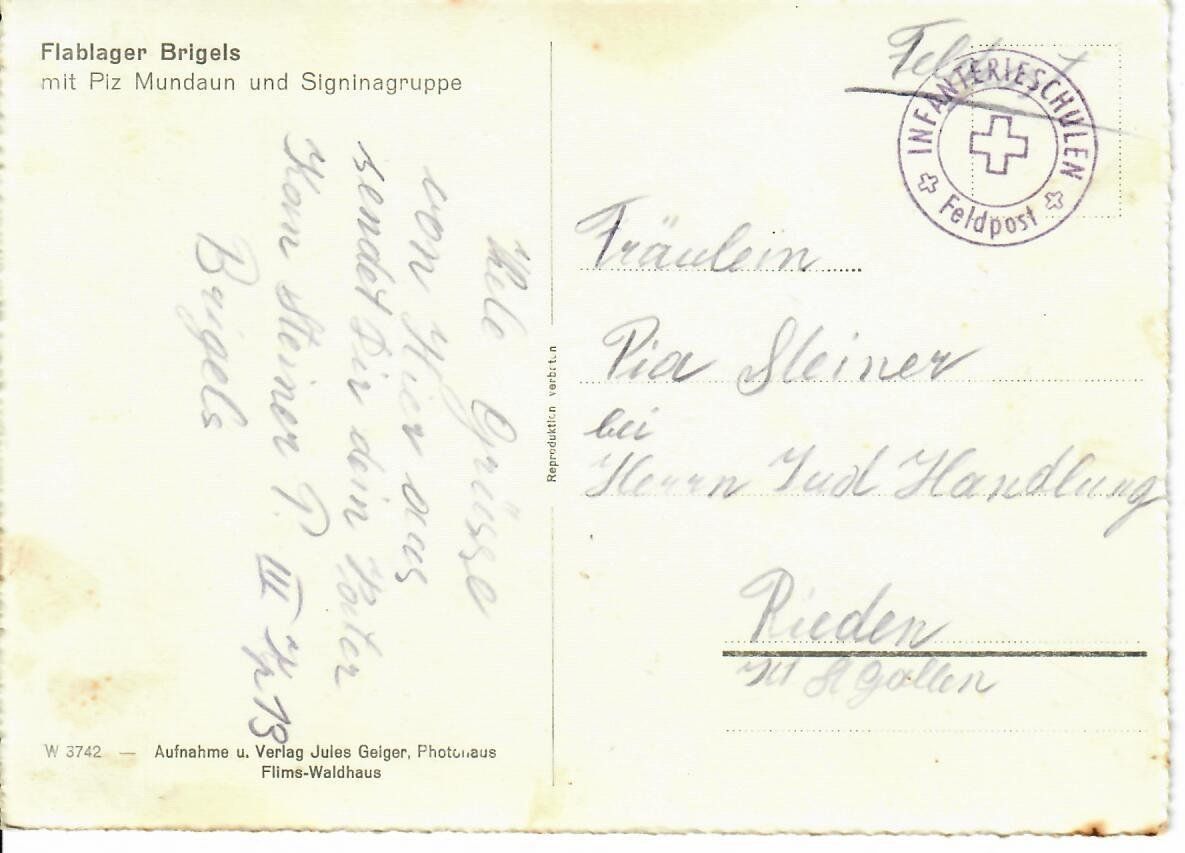 Flablager Brigels
mit Piz Mundaun und Signinagruppe
Feldpost
INFANTERIESCHULEN
Feldpost
Viele Grüsse
von Hier aus
sendet Dir dein Vater
Kan Steiner P. III
Brigels
Reproduktion verboten
Fräulein
Pia Steiner
bei
Herrn Jud Handlung
Rieden
Kt St Gallen
W 3742 — Aufnahme u. Verlag Jules Geiger, Photohaus
Flims-Waldhaus